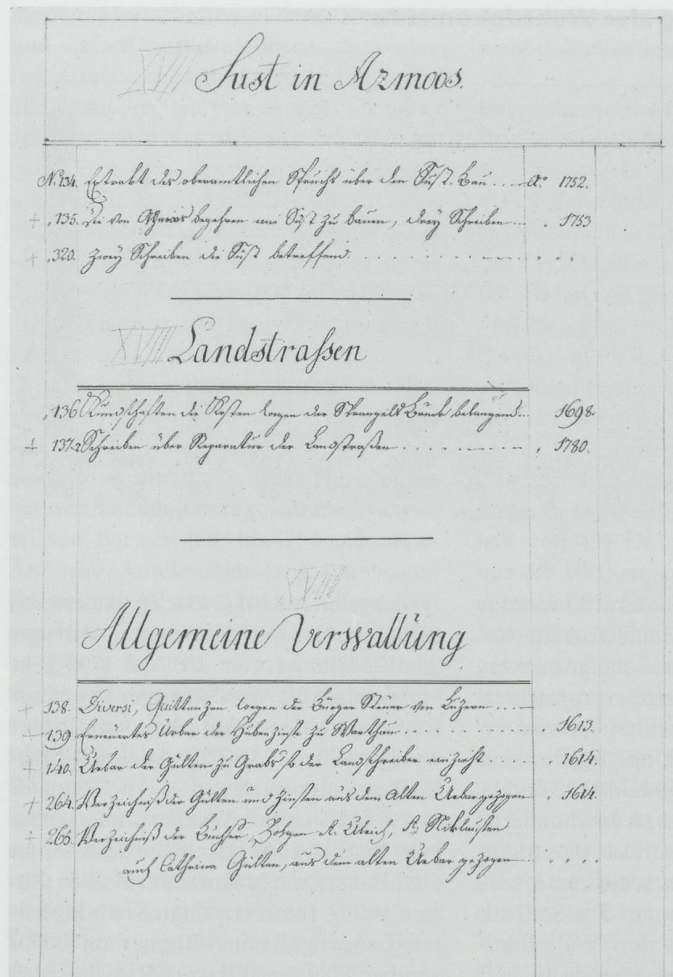 XVII Sust in Azmoos.
N. 134. Extrakt des oberamtlichen Spruchs über den Sust-Bau .... A.° 1752.
+ „ 135. Die von Azmoos begehren eine Sust zu bauen, drey Schreiben ... „ 1753
+ „ 320. Zwey Schreiben die Sust betreffend. . . . . . . . . „ . .
XVIII Landstrassen
„ 136 Kundschaften die Kosten wegen der belangend... 1698.
+ 137. 2 Schreiben über Reparatur der Landstraßen . . . . . . „ 1780.
XVIIII
Allgemeine Verwaltung
+ 138. Diversi, Quittanzen wegen der Bürger Steuer von Luzern ....
139 Erneuertes Urbar der Hubenzinse zu Warthau . . . . . . 1613.
+ 140. Urbar der Gülten zu Grabs so der Landschreiber einzieht . . . . . 1614.
+ 264. Verzeichniß der Gülten und Zinsen aus dem Alten Urbar gezogen . „ 1614.
+ 265. Verzeichniß der St. Ulrich, St. Niklausen
auch Cathrina Gülten, aus dem alten Urbar gezogen . . . . . .